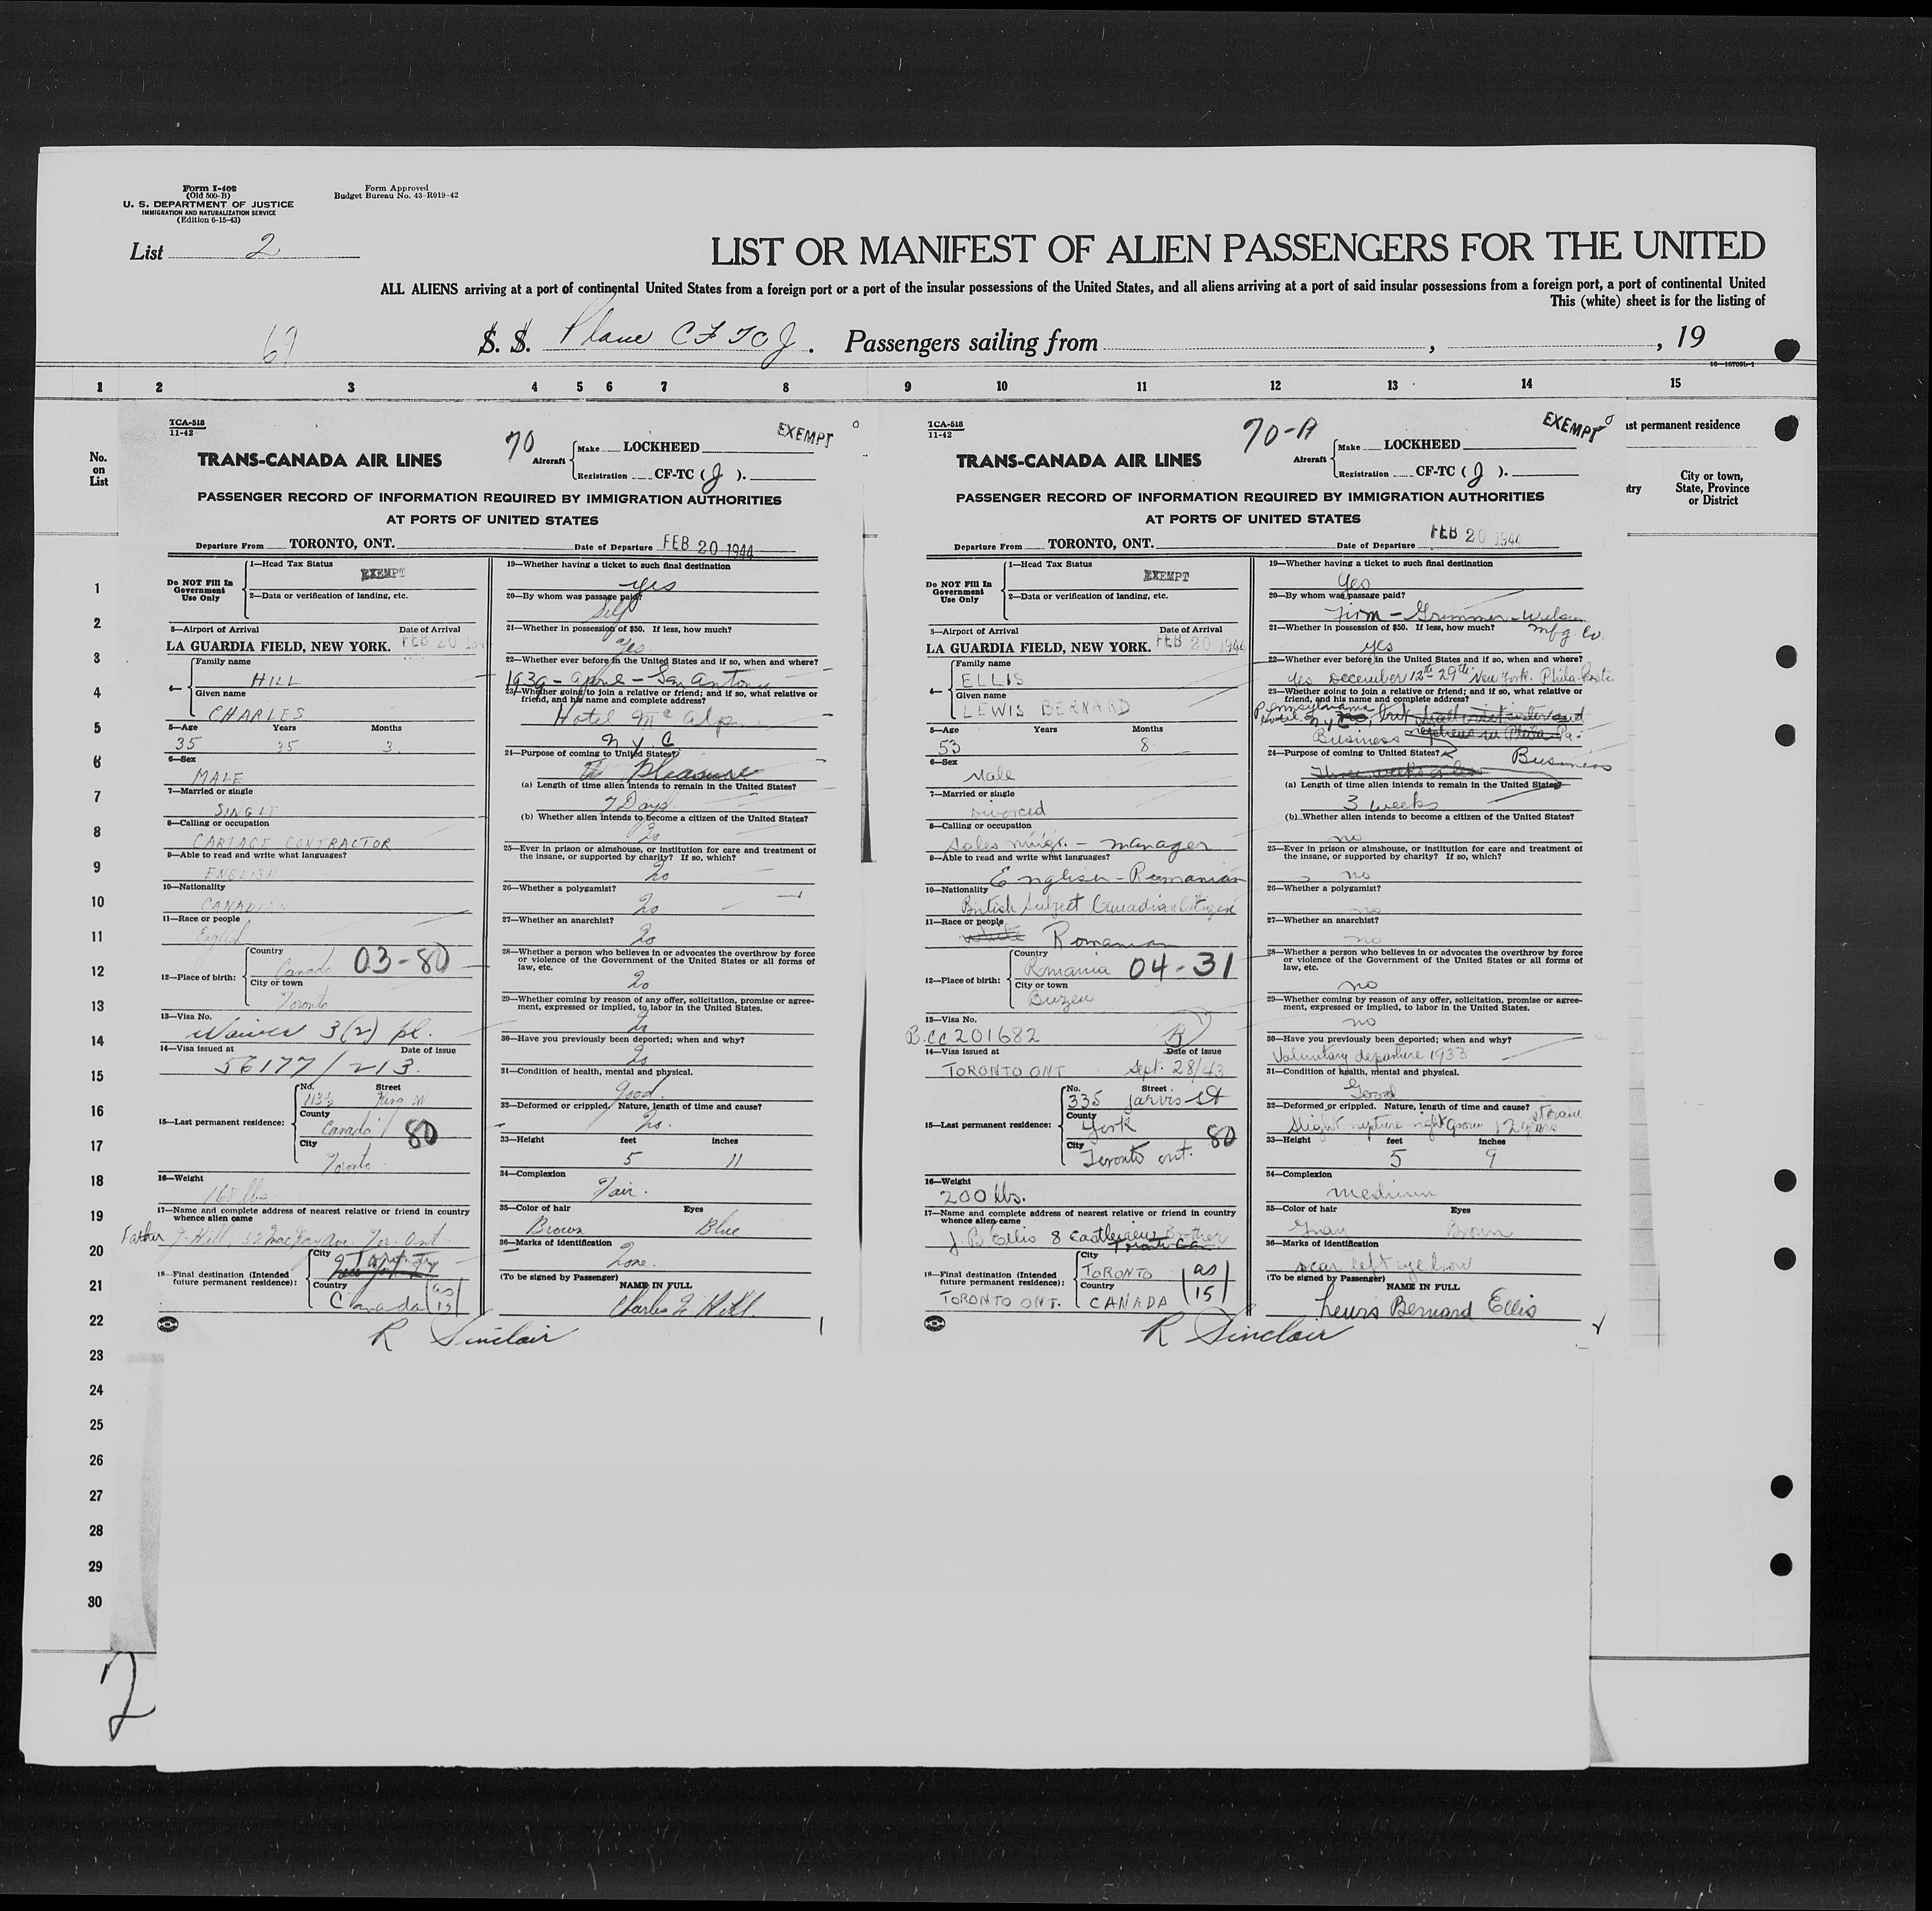 Form I-402
(Old 500-B)
U. S. DEPARTMENT OF JUSTICE
IMMIGRATION AND NATURALIZATION SERVICE
(Edition 6-15-43)
Form Approved
Budget Bureau No. 43-R019-42
List 2
LIST OR MANIFEST OF ALIEN PASSENGERS FOR THE UNITED
ALL ALIENS arriving at a port of continental United States from a foreign port or a port of the insular possessions of the United States, and all aliens arriving at a port of said insular possessions from a foreign port, a port of continental United
This (white) sheet is for the listing of
69 S. S. Plane CF TC J. Passengers sailing from , , 19
1 2 3 4 5 6 7 8 9 10 11 12 13 14 15
No. on List
ast permanent residence
try
City or town, State, Province or District
1
2
3
4
5
6
7
8
9
10
11
12
13
14
15
16
17
18
19
20
21
22
23
24
25
26
27
28
29
30
2
TCA-518
11-42
70
EXEMPT
TRANS-CANADA AIR LINES
Aircraft
Make LOCKHEED
Registration CF-TC ( J ).
PASSENGER RECORD OF INFORMATION REQUIRED BY IMMIGRATION AUTHORITIES
AT PORTS OF UNITED STATES
Departure From TORONTO, ONT. Date of Departure FEB 20 1944
Do NOT Fill In Government Use Only
1—Head Tax Status EXEMPT
2—Data or verification of landing, etc.
3—Airport of Arrival Date of Arrival
LA GUARDIA FIELD, NEW YORK. FEB 20 194
4— Family name
HILL
Given name
CHARLES
5—Age Years Months
35 35 3
6—Sex
MALE
7—Married or single
SINGLE
8—Calling or occupation
CARTAGE CONTRACTOR
9—Able to read and write what languages?
ENGLISH
10—Nationality
CANADIAN
11—Race or people
English
12—Place of birth:
Country
Canada 03-80
City or town
Toronto
13—Visa No.
Waiver 3(2) pl.
14—Visa issued at Date of issue
56177/213.
15—Last permanent residence:
No. Street
113½ King W
County
Canada 80
City
Toronto
16—Weight
165 lbs.
17—Name and complete address of nearest relative or friend in country whence alien came
Father J. Hill, 52 Ave. Tor. Ont
18—Final destination (Intended future permanent residence):
City
Country
Canada as 15
19—Whether having a ticket to such final destination
yes
20—By whom was passage paid?
Self
21—Whether in possession of $50. If less, how much?
Yes
22—Whether ever before in the United States and if so, when and where?
1939 - April - San Antonio
23—Whether going to join a relative or friend; and if so, what relative or friend, and his name and complete address?
Hotel McAlp
N Y C
24—Purpose of coming to United States?
pleasure
(a) Length of time alien intends to remain in the United States?
7 Days
(b) Whether alien intends to become a citizen of the United States?
No
25—Ever in prison or almshouse, or institution for care and treatment of the insane, or supported by charity? If so, which?
No
26—Whether a polygamist?
No
27—Whether an anarchist?
No
28—Whether a person who believes in or advocates the overthrow by force or violence of the Government of the United States or all forms of law, etc.
No
29—Whether coming by reason of any offer, solicitation, promise or agreement, expressed or implied, to labor in the United States.
No
30—Have you previously been deported; when and why?
No
31—Condition of health, mental and physical.
Good.
32—Deformed or crippled. Nature, length of time and cause?
No.
33—Height feet inches
5 11
34—Complexion
Fair.
35—Color of hair Eyes
Brown Blue
36—Marks of identification
None.
(To be signed by Passenger)
NAME IN FULL
Charles Hill.
R Sinclair
TCA-518
11-42
70-A
EXEMPT
TRANS-CANADA AIR LINES
Aircraft
Make LOCKHEED
Registration CF-TC ( J ).
PASSENGER RECORD OF INFORMATION REQUIRED BY IMMIGRATION AUTHORITIES
AT PORTS OF UNITED STATES
Departure From TORONTO, ONT. Date of Departure FEB 20 1944
Do NOT Fill In Government Use Only
1—Head Tax Status EXEMPT
2—Data or verification of landing, etc.
3—Airport of Arrival Date of Arrival
LA GUARDIA FIELD, NEW YORK. FEB 20 1944
4— Family name
ELLIS
Given name
LEWIS BERNARD
5—Age Years Months
53 8
6—Sex
Male
7—Married or single
Divorced
8—Calling or occupation
Sales mngr. - manager
9—Able to read and write what languages?
English - Rumanian
10—Nationality
British Subject Canadian Citizen
11—Race or people
white Romanian
12—Place of birth:
Country
Romania 04-31
City or town
Buzeu
13—Visa No.
B.CC 201682 R
14—Visa issued at Date of issue
TORONTO ONT Sept. 28/43
15—Last permanent residence:
No. Street
335 Jarvis St
County
York 80
City
Toronto ont.
16—Weight
200 lbs.
17—Name and complete address of nearest relative or friend in country whence alien came
J. B. Ellis 8 Eastview Brother
18—Final destination (Intended future permanent residence):
TORONTO ONT.
City
TORONTO
Country
CANADA as 15
19—Whether having a ticket to such final destination
Yes
20—By whom was passage paid?
Firm - Grimmer-Wilson Mfg. Co.
21—Whether in possession of $50. If less, how much?
yes
22—Whether ever before in the United States and if so, when and where?
Yes December 12th 29th New York. Phila.
23—Whether going to join a relative or friend; and if so, what relative or friend, and his name and complete address?
Pennsylvania Hotel NYC, but shall visit sister and nephews in Phila Pa.
Business
24—Purpose of coming to United States?
Three weeks or less Business
(a) Length of time alien intends to remain in the United States?
3 weeks
(b) Whether alien intends to become a citizen of the United States?
no
25—Ever in prison or almshouse, or institution for care and treatment of the insane, or supported by charity? If so, which?
no
26—Whether a polygamist?
no
27—Whether an anarchist?
no
28—Whether a person who believes in or advocates the overthrow by force or violence of the Government of the United States or all forms of law, etc.
no
29—Whether coming by reason of any offer, solicitation, promise or agreement, expressed or implied, to labor in the United States.
no
30—Have you previously been deported; when and why?
Voluntary departure 1933
31—Condition of health, mental and physical.
Good
32—Deformed or crippled. Nature, length of time and cause?
Slight rupture right groin 12 years strain
33—Height feet inches
5 9
34—Complexion
medium
35—Color of hair Eyes
Gray Brown
36—Marks of identification
scar left eyebrow
(To be signed by Passenger)
NAME IN FULL
Lewis Bernard Ellis
R Sinclair